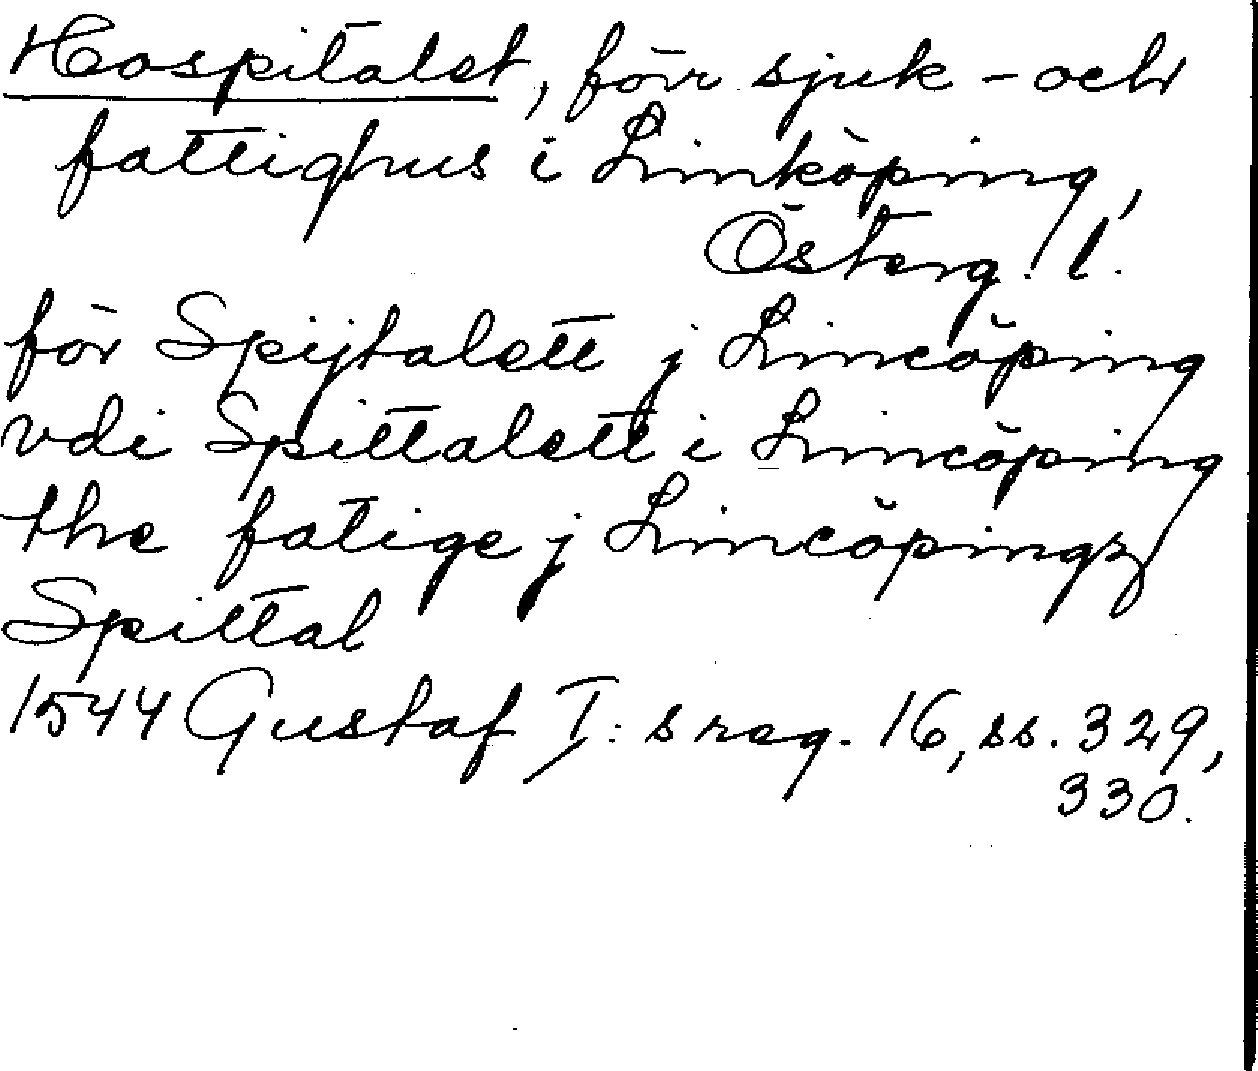 Hospitalet, förr sjuk- och
fattighus i Linköping,
Österg. l.
för Spijtalett j Lincöping
vdi Spittalett i Lincöping
the fatige j Lincöpingz
Spittal
1544 Gustaf I:s reg. 16, ss. 329,
330.